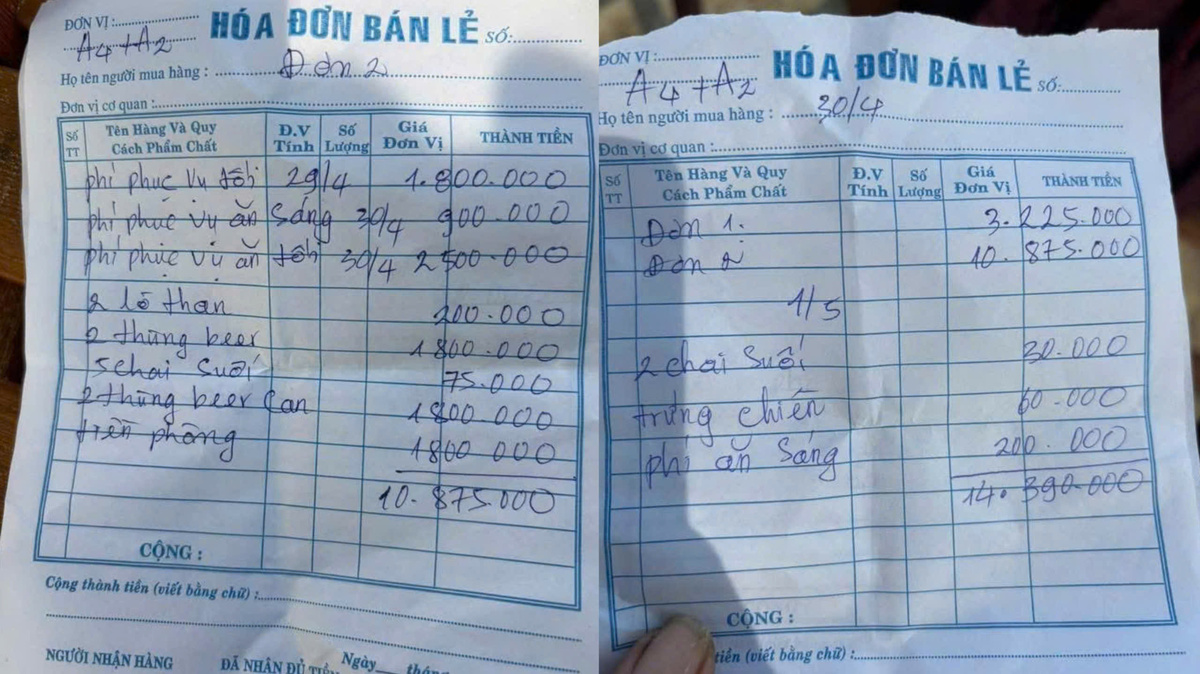 ĐƠN VỊ:
HÓA ĐƠN BÁN LẺ SỐ:
A4+A2
Họ tên người mua hàng : Đơn 2
Đơn vị cơ quan :
Số TT Tên Hàng Và Quy Cách Phẩm Chất Đ.V Tính Số Lượng Giá Đơn Vị THÀNH TIỀN
phí phục vụ tối 29/4 1.800.000
phí phục vụ ăn sáng 30/4 900.000
phí phục vụ ăn tối 30/4 2500.000
2 lò than 200.000
2 thùng beer 1800.000
5 chai suối 75.000
2 thùng beer Can 1800.000
tiền phòng 1800 000
10.875.000
CỘNG :
Cộng thành tiền (viết bằng chữ) :
NGƯỜI NHẬN HÀNG
ĐÃ NHẬN ĐỦ TIỀN
Ngày tháng
ĐƠN VỊ :
HÓA ĐƠN BÁN LẺ SỐ:
A4+A2
Họ tên người mua hàng : 30/4
Đơn vị cơ quan :
Số TT Tên Hàng Và Quy Cách Phẩm Chất Đ.V Tính Số Lượng Giá Đơn Vị THÀNH TIỀN
Đơn 1. 3.225.000
Đơn 2 10.875.000
1/5
2 chai suối 30.000
trứng chiến 60.000
phí ăn sáng 200.000
14.390.000
CỘNG :
tiền (viết bằng chữ) :